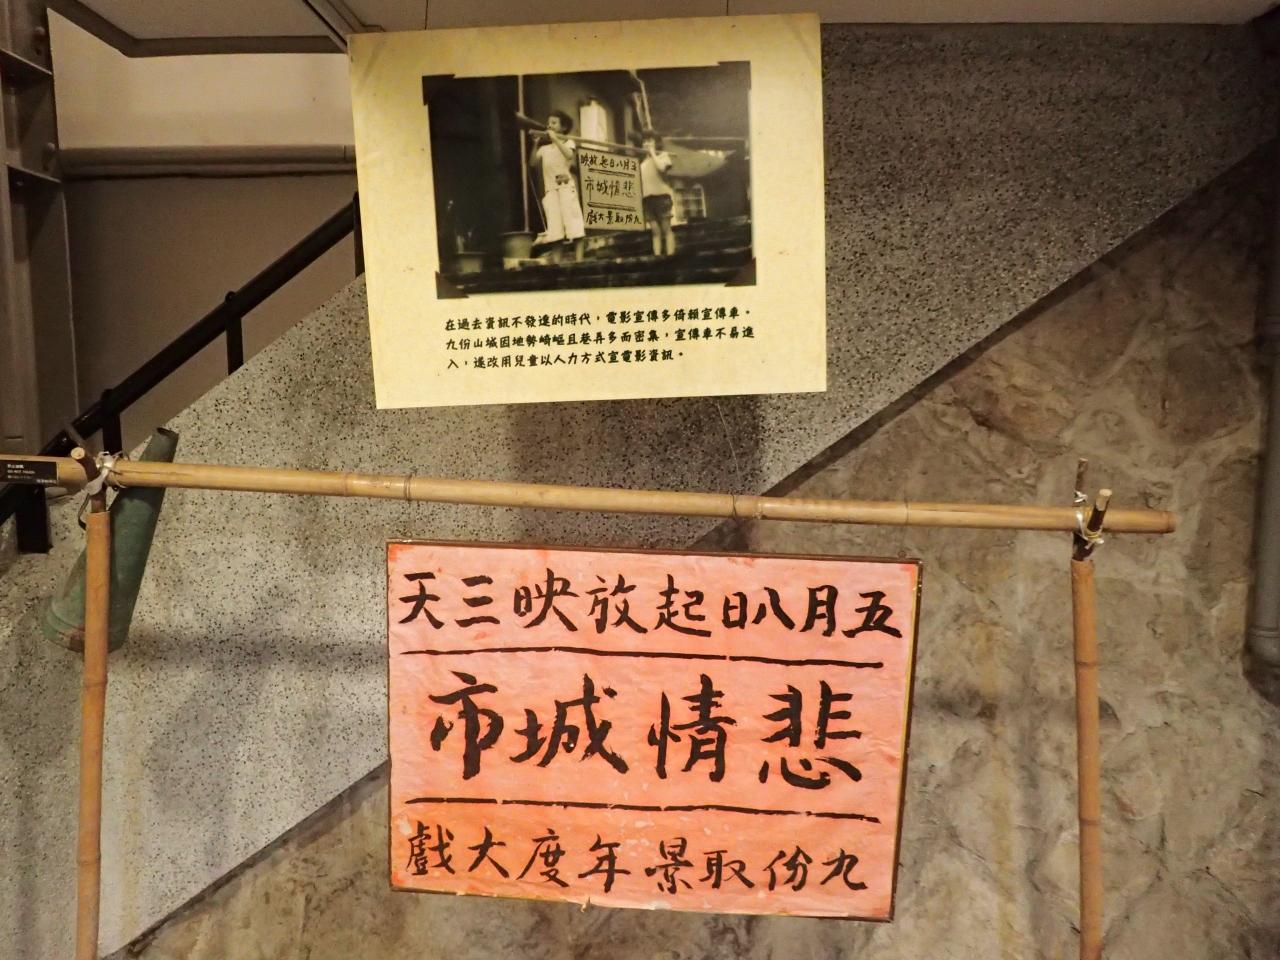 五月八日起放映
悲情城市
九份取景大戲
在過去資訊不發達的時代，電影宣傳多倚賴宣傳車。
九份山城因地勢崎嶇且巷弄多而密集，宣傳車不易進
入，遂改用兒童以人力方式宣電影資訊。
DO NOT TOUCH
五月八日起放映三天
悲情城市
九份取景年度大戲